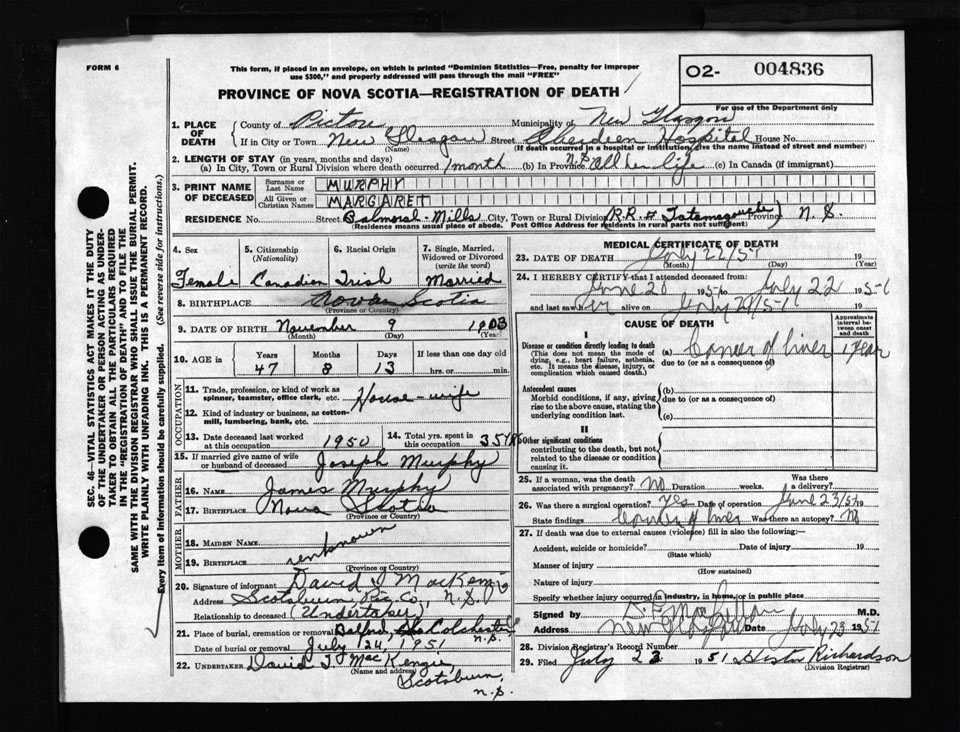 FORM 6
This form, if placed in an envelope, on which is printed "Dominion Statistics—Free, penalty for improper
use $300," and properly addressed will pass through the mail "FREE"
O2- 004836
For use of the Department only
PROVINCE OF NOVA SCOTIA—REGISTRATION OF DEATH
1. PLACE OF DEATH
County of Pictou Municipality of New Glasgow
If in City or Town New Glasgow Street Aberdeen Hospital House No.
(Name) (If death occurred in a hospital or institution, give the name instead of street and number)
2. LENGTH OF STAY (in years, months and days)
(a) In City, Town or Rural Division where death occurred 1 month (b) In Province N.S. All her life (c) In Canada (if immigrant)
3. PRINT NAME OF DECEASED
Surname or Last Name MURPHY
All Given or Christian Names MARGARET
RESIDENCE No. Street Balmoral-Mills City, Town or Rural Division R.R. # Tatamagouche Province N.S.
(Residence means usual place of abode. Post Office Address for residents in rural parts not sufficient)
4. Sex Female
5. Citizenship (Nationality) Canadian
6. Racial Origin Irish
7. Single, Married, Widowed or Divorced (write the word) Married
8. BIRTHPLACE Nova Scotia
(Province or Country)
9. DATE OF BIRTH November 9 1903
(Month) (Day) (Year)
10. AGE in Years 47 Months 8 Days 13 If less than one day old hrs. or min.
OCCUPATION
11. Trade, profession, or kind of work as spinner, teamster, office clerk, etc. House-wife
12. Kind of industry or business, as cotton-mill, lumbering, bank, etc.
13. Date deceased last worked at this occupation 1950
14. Total yrs. spent in this occupation 35 yrs
15. If married give name of wife or husband of deceased Joseph Murphy
FATHER
16. NAME James Murphy
17. BIRTHPLACE Nova Scotia
(Province or Country)
MOTHER
18. MAIDEN NAME
unknown
19. BIRTHPLACE
(Province or Country)
20. Signature of informant David J MacKenzie
Address Scotsburn, Pic. Co., N.S.
Relationship to deceased (Undertaker)
21. Place of burial, cremation or removal Colchester N.S.
Date of burial or removal July 24, 1951
22. UNDERTAKER David J. MacKenzie
(Name and address)
Scotsburn,
N.S.
MEDICAL CERTIFICATE OF DEATH
23. DATE OF DEATH July 22/51 19
(Month) (Day) (Year)
24. I HEREBY CERTIFY that I attended deceased from:
June 20 1951 to July 22 1951
and last saw her alive on July 21/51 19
CAUSE OF DEATH
Approximate interval between onset and death
I
Disease or condition directly leading to death
(This does not mean the mode of dying, e.g., heart failure, asthenia, etc. It means the disease, injury, or complication which caused death.)
(a) Cancer of liver 1 Year
due to (or as a consequence of)
Antecedent causes
Morbid conditions, if any, giving rise to the above cause, stating the underlying condition last.
(b)
due to (or as a consequence of)
(c)
II
Other significant conditions
contributing to the death, but not related to the disease or condition causing it.
25. If a woman, was the death associated with pregnancy? No Duration weeks. Was there a delivery?
26. Was there a surgical operation? Yes Date of operation June 23/51 19
State findings Cancer of liver Was there an autopsy? No
27. If death was due to external causes (violence) fill in also the following:—
Accident, suicide or homicide? Date of injury 19
(State which)
Manner of injury
(How sustained)
Nature of injury
Specify whether injury occurred in industry, in home, or in public place
Signed by M.D.
Address New Glasgow Date July 23 1951
28. Division Registrar's Record Number
29. Filed July 23 1951 Hester Richardson
(Division Registrar)
SEC. 46—VITAL STATISTICS ACT MAKES IT THE DUTY
OF THE UNDERTAKER OR PERSON ACTING AS UNDER-
TAKER TO OBTAIN ALL THE PARTICULARS REQUIRED
IN THE "REGISTRATION OF DEATH" AND TO FILE THE
SAME WITH THE DIVISION REGISTRAR WHO SHALL ISSUE THE BURIAL PERMIT.
WRITE PLAINLY WITH UNFADING INK. THIS IS A PERMANENT RECORD.
Every item of information should be carefully supplied. (See reverse side for instructions.)